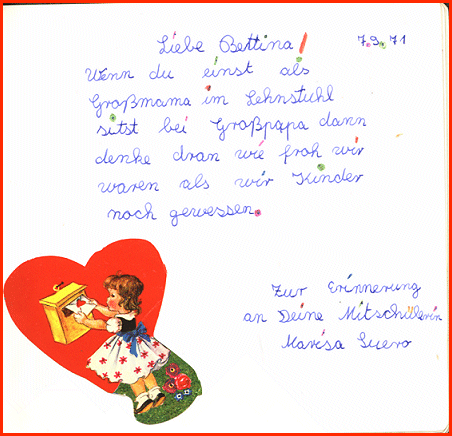 Liebe Bettina! 7.9.71
Wenn du einst als
Großmama im Lehnstuhl
sitst bei Großpapa dann
denke dran wie froh wir
waren als wir Kinder
noch gewessen.
Zur Erinnerung
an Deine Mitschülerin
Marisa Suero